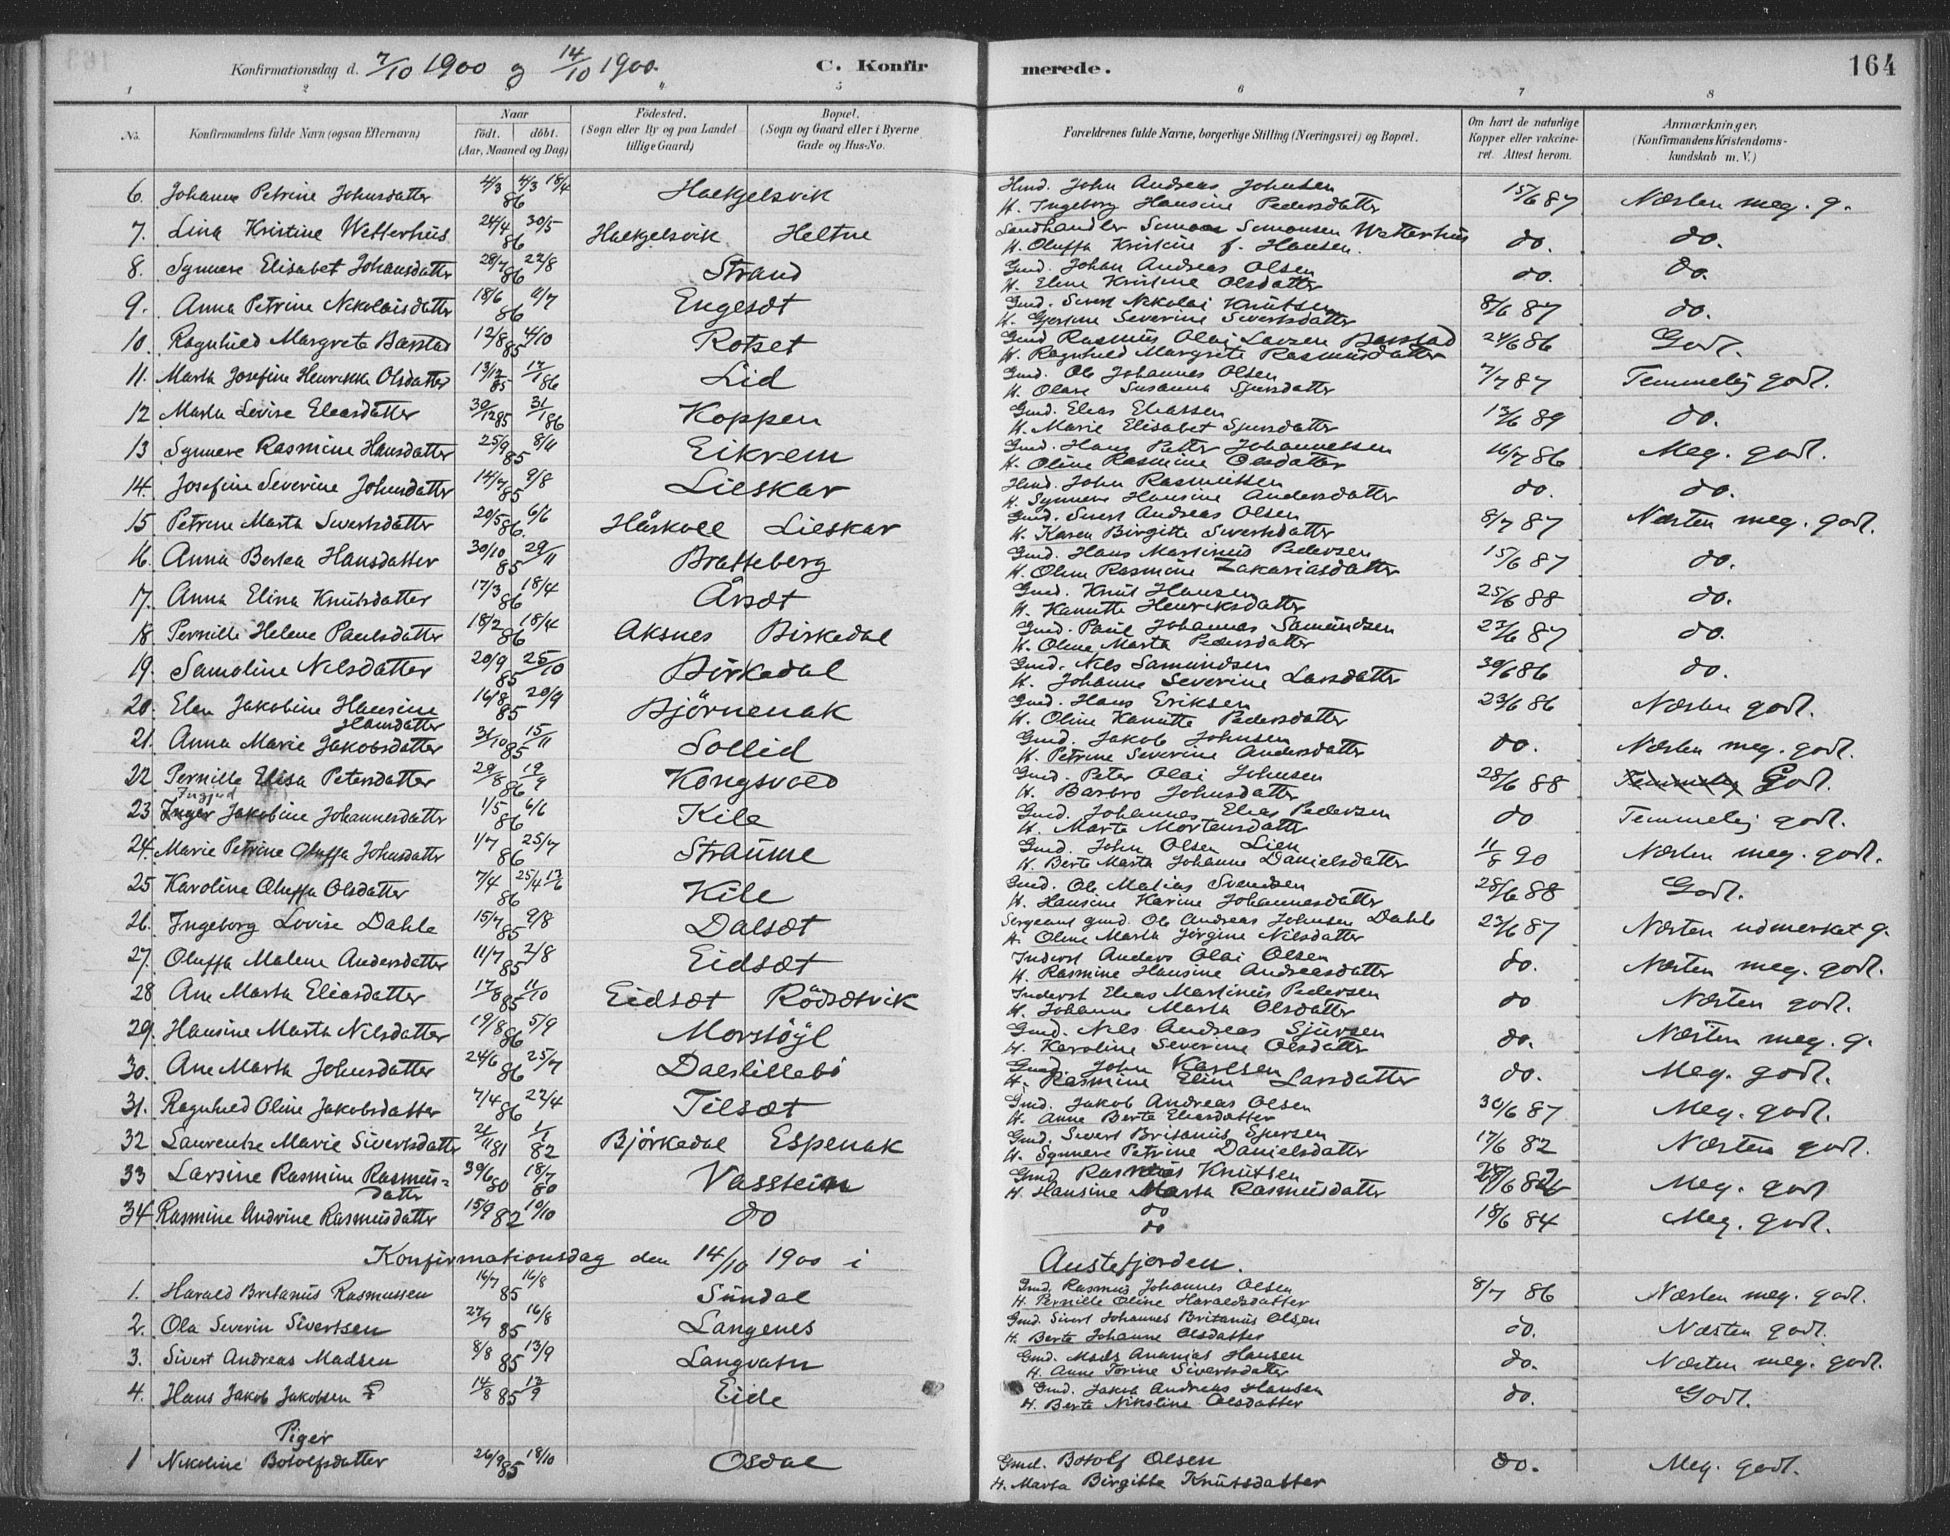 Konfirmationsdag d. 7/10 1900 og 14/10 1900. C. Konfirmerede. 164
1 2 3 4 5 6 7 8
No. Konfirmandens fulde Navn (ogsaa Efternavn) Naar födt. döbt. (Aar, Maaned og Dag) Födested. (Sogn eller By og paa Landet tillige Gaard) Bopæl. (Sogn og Gaard eller i Byerne Gade og Hus-No. Forældrenes fulde Navne, borgerlige Stilling (Næringsvei) og Bopæl. Om havt de naturlige Kopper eller vakcineret. Attest herom. Anmærkninger. (Konfirmandens Kristendomskundskab m. V.)
6. Johanne Petrine Johnsdatter 4/3 86 4/3 18/4 Haekjelsvik John Andreas Johnsen 15/6 87 Næsten meg. g.
H. Ingeborg Hansine Pedersdatter
7. Lina Kristine Wetterhus 24/4 86 30/5 Haekjelsvik Heltne Landhandler Simon Simonsen Wetterhus do. do.
H. Oluffa Kristine f. Hansen.
8. Synnere Elisabet Johansdatter 28/7 86 22/8 Strand Gmd. Johan Andreas Olsen do. do.
H. Eline Kristine Olsdatter
9. Anna Petrine Nikolaisdatter 18/6 86 4/7 Engesæt Gmd. Sivert Nikolai Knutsen 8/6 87 do.
H. Gjertine Severine Sivertsdatter
10. Ragnhild Margrete Barstad 12/8 85 4/10 Rotset Gmd Rasmus Olai Larsen Barstad 24/6 86 Godt.
H. Ragnhild Margrete Rasmusdatter
11. Marta Josefine Henrikka Olsdatter 13/12 85 17/1 86 Lid Gmd. Ole Johannes Olsen 7/7 87 Temmelig godt.
H. Olave Susanna Sjursdatter
12 Marta Lovise Eleasdatter 30/12 85 31/1 86 Koppen Gmd. Elias Eliassen 13/6 89 do.
H. Marie Elisabet Sjursdatter
13 Synnere Rasmine Hansdatter 25/9 85 8/11 Eikrem Gmd. Hans Petter Johannessen 16/7 86 Meg. godt.
H. Oline Rasmine Olsdatter
14. Josefine Severine Johnsdatter 14/7 85 9/8 Lieskar John Rasmussen do. do.
H. Synnere Hansine Andersdatter
15 Petrine Marta Sivertsdatter 20/5 86. 6/6 Håskoll Lieskar Gmd. Sivert Andreas Olsen 8/7 87 Næsten meg. godt.
H. Karen Birgitte Sivertsdatter
16. Anna Bertea Hansdatter 30/10 85 29/11 Bratteberg Gmd. Hans Martinus Pedersen 15/6 87 do.
H. Oline Rasmine Zakariasdatter
17. Anna Elina Knutsdatter 17/3 86 18/4 Årsæt Gmd. Knut Hansen 25/6 88 do.
H. Kanutte Henriksdatter
18 Pernille Helene Paulsdatter 18/2 86 18/4 Aksnes Birkedal Gmd. Paul Johannes Samundsen 23/6 87 do.
H. Oline Marta Pedersdatter
19. Samoline Nilsdatter 20/9 85 25/10 Birkedal Gmd. Nils Samundsen 30/6 86 do.
H. Johanne Severine Larsdatter
20. Elen Jakobine Hansine Hansdatter 16/8 85 20/9 Björnenak Gmd. Hans Eriksen 23/6 86 Næsten godt.
H. Oline Kanutte Pedersdatter
21. Anna Marie Jakobsdatter 31/10 85 15/11 Sollid Gmd. Jakob Johnsen do. Næsten meg. godt.
H. Petrine Severine Andersdatter
22 Pernille Elisa Petersdatter 29/8 86 19/9 Kongsvold Gmd. Peter Olai Johnsen 28/6 88 Temmelig Godt.
H. Barbro Johnsdatter
23 Inger Ingjerd Jakobine Johannesdatter 1/5 86 6/6 Kile Gmd. Johannes Elias Pedersen do Temmelig godt.
H. Marte Mortensdatter
24. Marie Petrine Oluffa Johnsdatter 1/7 86 25/7 Straume Gmd. John Olsen Lien 11/8 90 Næsten meg. godt.
H. Berte Marta Johanne Danielsdatter
25 Karoline Oluffa Olsdatter 7/4 86 25/4 13/6 Kile Gmd. Ole Matias Svendsen 28/6 88 Godt.
H. Hansine Karine Johannesdatter
26. Ingeborg Lovise Dahle 15/7 85 9/8 Dalsæt Sergeant gmd. Ole Andreas Johnsen Dahle 23/6 87 Næsten udmerket g.
H. Oline Marta Jörgine Nilsdatter
27. Oluffa Malene Andersdatter 11/7 85 2/8 Eidsæt Inderst Anders Olai Olsen do. Næsten meg. godt.
H. Rasmine Hansine Andreasdatter
28 Ane Marta Eliasdatter 17/8 85 11/10 Eidsæt Rödsætvik Inderst Elias Martinus Pedersen do Næsten godt.
H. Johanne Marta Olsdatter
29. Hansine Marta Nilsdatter 19/8 86 5/9 Morstöyl Gmd. Nils Andreas Sjursen do. Næsten meg. g.
H. Karoline Severine Olsdatter
30. Ane Marta Johnsdatter 24/6 86 25/7 Dalslillebö Gmd. John Karlsen do. Meg. godt.
H. Rasmine Eline Larsdatter
31. Ragnhild Oline Jakobsdatter 7/4 86 22/4 Tilsæt Gmd. Jakob Andreas Olsen 30/6 87 Meg. godt.
H. Anne Berte Eliasdatter
32 Laurentse Marie Sivertsdatter 21/11 81 1/1 82 Björkedal Espenak Gmd. Sivert Britanus Sjursen 17/6 82 Næsten godt.
H. Synnere Petrine Danielsdatter
33 Larsine Rasmine Rasmusdatter 30/6 80 18/7 80 Vasstein Gmd Rasmus Knutsen Meg. godt
H. Hansine Marta Rasmusdatter
34 Rasmine Andrine Rasmusdatter 15/9 82 10/10 do do do 18/6 84 Meg. godt.
Konfirmationsdag den 14/10 1900 i Austefjorden.
1. Harald Britanus Rasmussen 16/7 85 16/8 Sundal Gmd. Rasmus Johannes Olsen 8/7 86 Næsten meg. godt.
H. Pernille Oline Haraldsdatter
2. Ola Severin Sivertsen 27/7 85 16/8 Langenes Gmd. Sivert Johannes Britanus Olsen do. Næsten godt.
H. Berte Johanne Olsdatter
3. Sivert Andreas Madsen 8/8 85 13/9 Langvatn Gmd. Mads Ananias Hansen do. Næsten meg. godt.
H. Anne Torine Sivertsdatter
4. Hans Jakob Jakobsen 14/8 85 13/9 Eide Gmd. Jakob Andreas Hansen do. Godt.
H. Berte Nikoline Olsdatter
Piger
1 Nikoline Botolfsdatter 26/9 85 18/10 Osdal Gmd. Botolf Olsen do. Meg. godt.
H. Marta Birgitte Knutsdatter